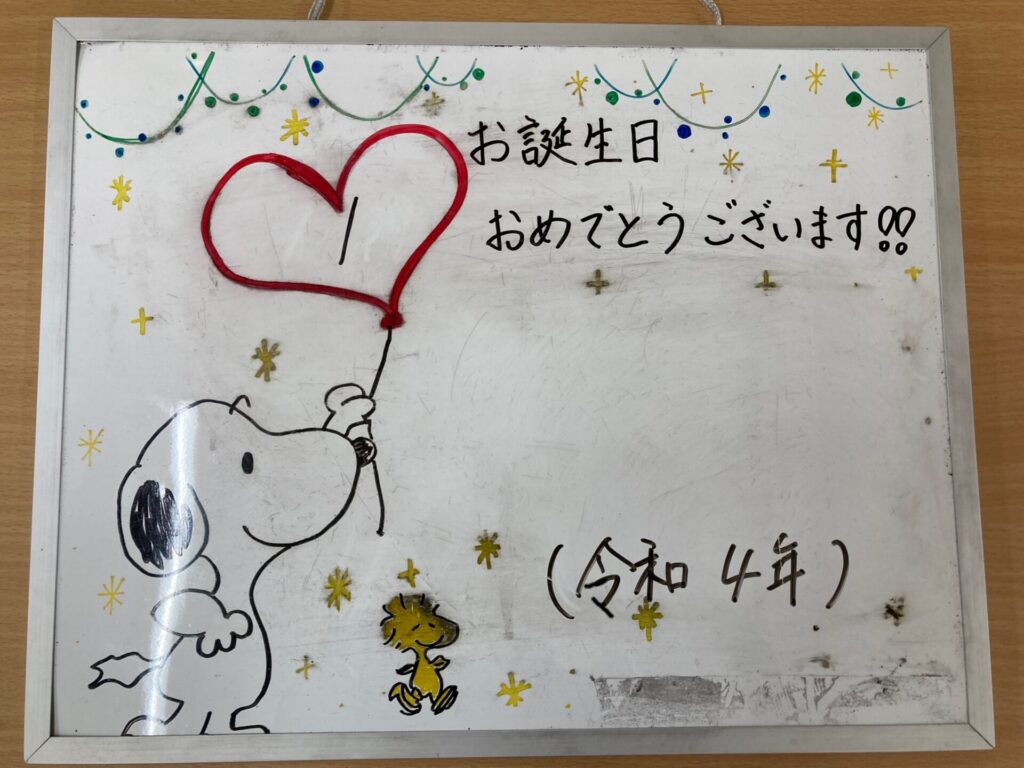 お誕生日
おめでとうございます!!
1
(令和 4年)